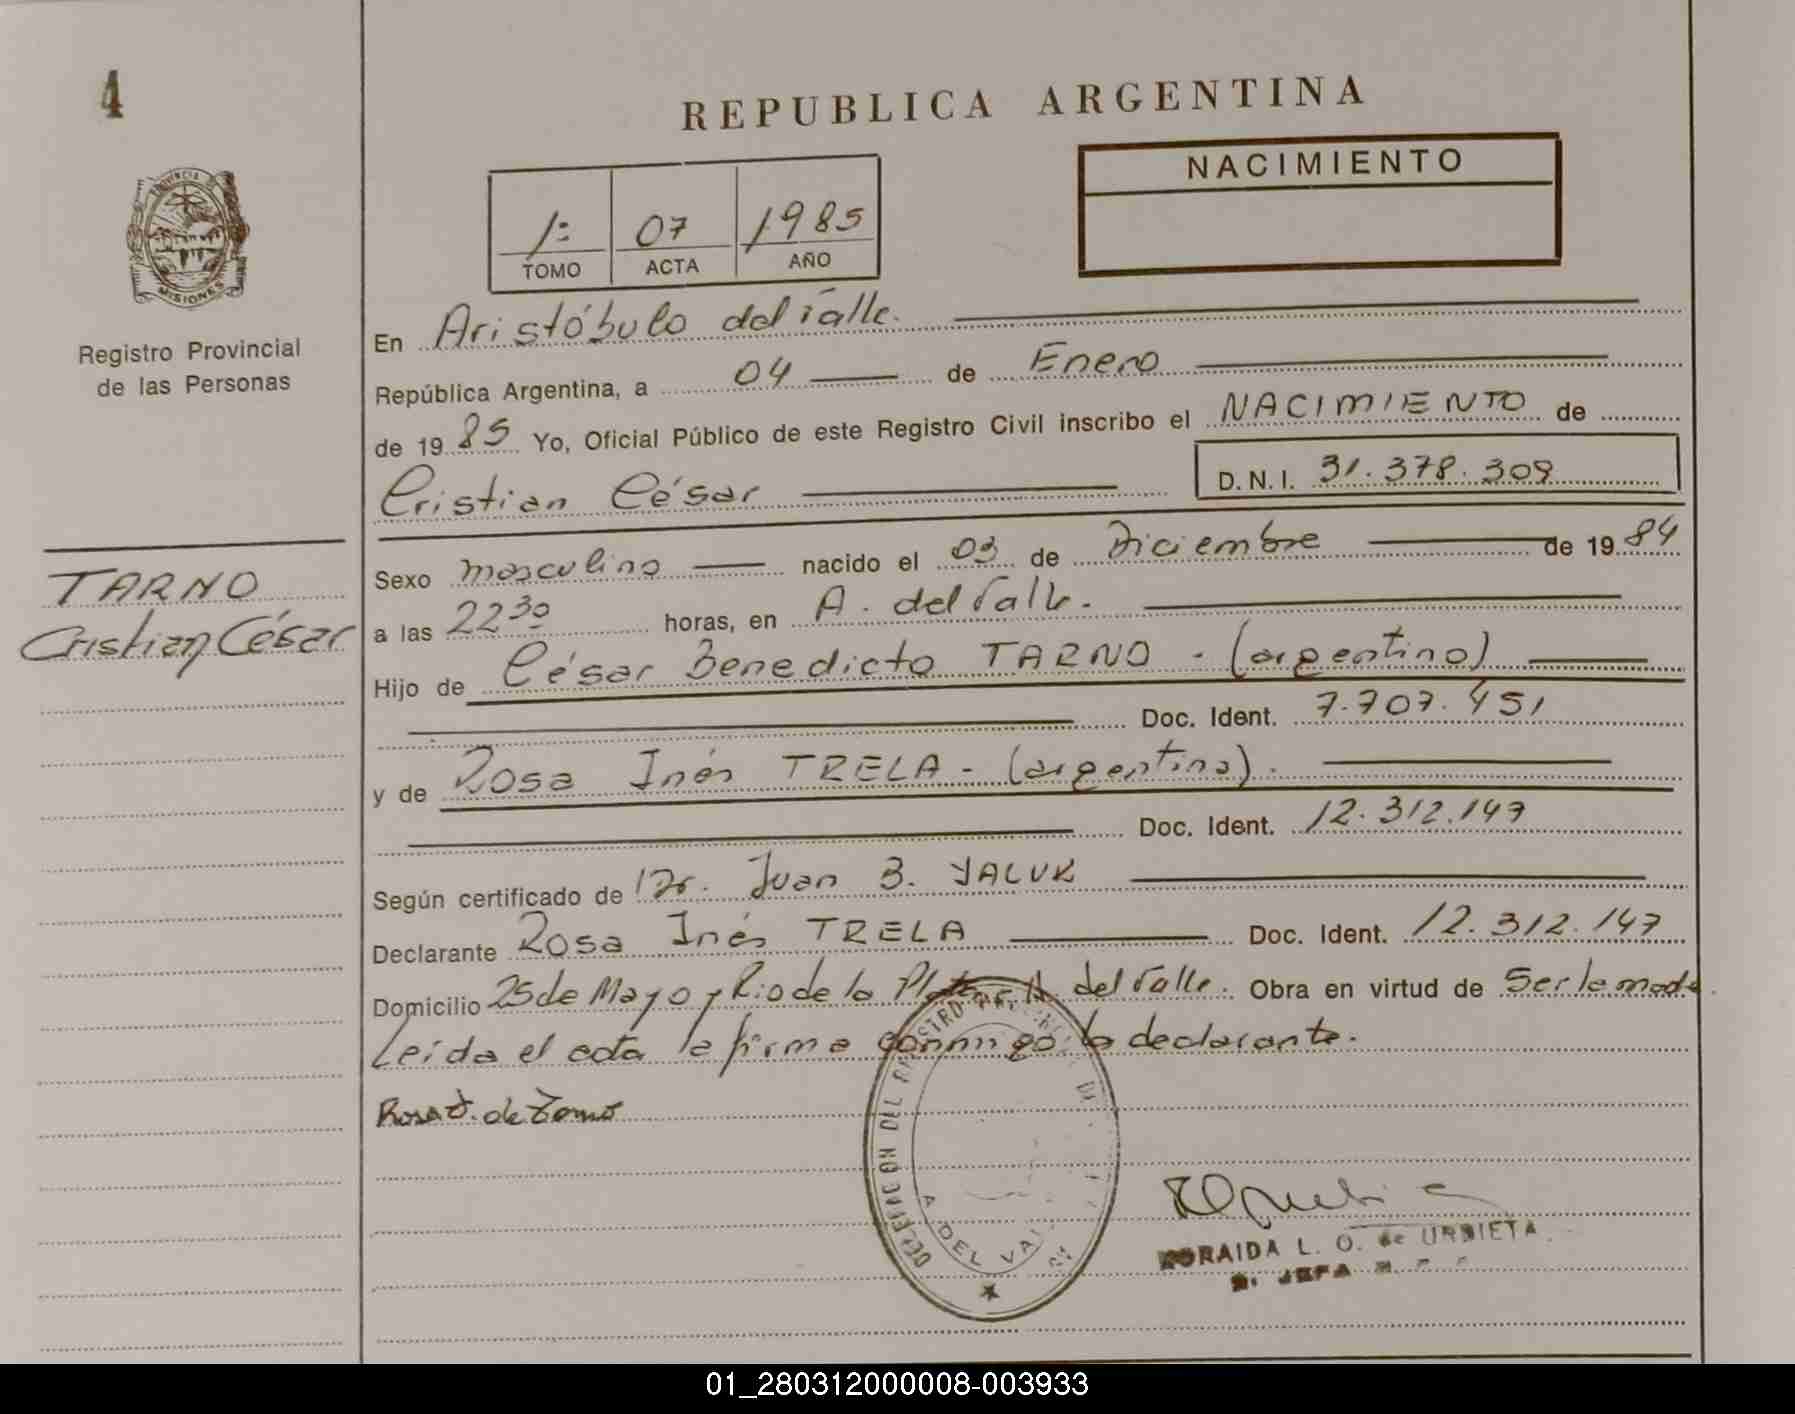 4
REPUBLICA ARGENTINA
NACIMIENTO
1: 07 1985
TOMO ACTA AÑO
PROVINCIA DE MISIONES
Registro Provincial
de las Personas
En Aristóbulo del Valle.
República Argentina, a 04 de Enero
de 1985 Yo, Oficial Público de este Registro Civil inscribo el NACIMIENTO de
Cristian César D.N.I. 31.378.309
TARNO
Cristian César
Sexo masculino nacido el 03 de Diciembre de 1984
a las 22 30 horas, en A. del Valle.
Hijo de César Benedicto TARNO - (argentino)
Doc. Ident. 7.707.451
y de Rosa Inés TRELA - (argentina).
Doc. Ident. 12.312.147
Según certificado de Dr. Juan B. YALUK
Declarante Rosa Inés TRELA Doc. Ident. 12.312.147
Domicilio 25 de Mayo y Rio de la Plata - A del Valle. Obra en virtud de Ser la madre
Leida el acta la firma conmigo la declarante.
Rosa T. de Tarno
DELEGACION DEL REGISTRO
A. DEL VALLE
ZORAIDA L. O. de URBIETA
JEFA
01_280312000008-003933